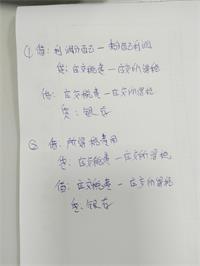 ① 借：利润分配—未分配利润
贷：应交税费—应交所得税
借：应交税费—应交所得税
贷：银存
② 借：所得税费用
贷：应交税费—应交所得税
借：应交税费—应交所得税
贷：银存